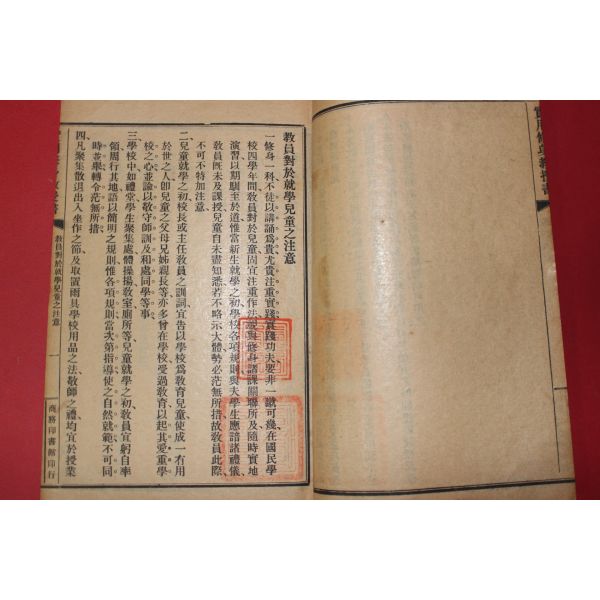 教員對於就學兒童之注意
一修身一科不徒以講誦爲貴尤貴注重實踐實踐功夫要非一蹴可幾在國民學
校四學年間教員對於兒童固宜注重作法與修身諸課關聯所及隨時實地
演習以期馴至於道惟當新生就學之初學校各項規則與夫學生應諳諸禮儀、
教員旣未及課授兒童自未盡知悉若不略示大體勢必茫無所措故教員此際、
不可不特加注意、
二、兒童就學之初校長或主任教員之訓詞宜告以學校爲教育兒童使成一有用
於世之人卽兒童之父母兄姊親長等亦多曾在學校受過教育以起其愛重學
校之心並諭以敬守師訓及和處同學等事
三、學校中如禮堂學生聚集處體操場教室廁所等兒童就學之初教員宜躬自率
領周行其地語以簡明之規則惟各項規則當次第指導使之自然就範不可同
時並舉轉令茫無所措、
四、凡聚集散退出入坐作之節及取置雨具學校用品之法、敬師之禮均宜於授業
教員對於就學兒童之注意
一
商務印書館印行